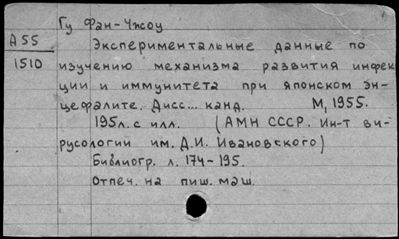 Гу Фан-Чжоу
А55
1510
Экспериментальные данные по
изучению механизма развития инфек
ции и иммунитета при японском эн-
цефалите. Дисс... канд. М, 1955.
195л. с илл. (АМН СССР. Ин-т ви-
русологии им. Д.И. Ивановского)
Библиогр. л. 174-195.
Отпеч. на пиш. маш.